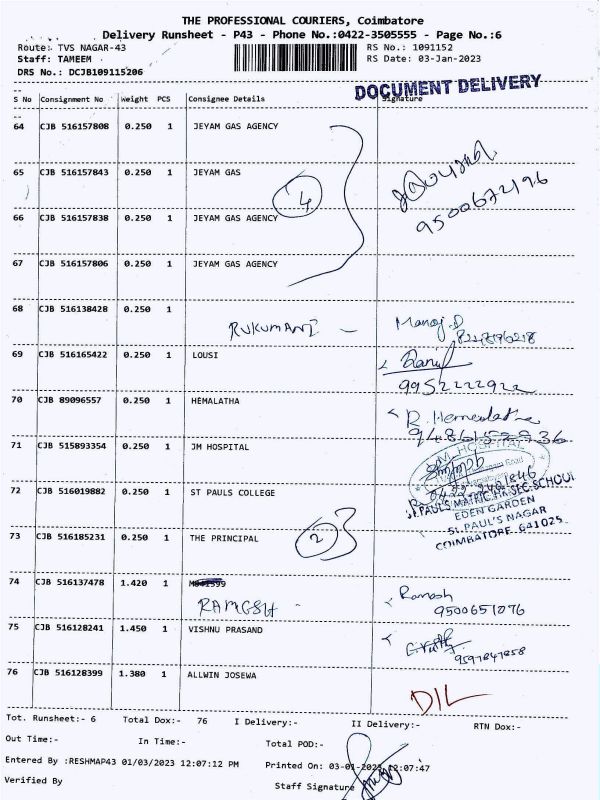 THE PROFESSIONAL COURIERS, Coimbatore
Delivery Runsheet - P43 - Phone No.:0422-3505555 - Page No.:6
Route: TVS NAGAR-43
RS No.: 1091152
Staff: TAMEEM
RS Date: 03-Jan-2023
DRS No.: DCJB109115206
DOCUMENT DELIVERY
S No Consignment No Weight PCS Consignee Details Signature
64 CJB 516157808 0.250 1 JEYAM GAS AGENCY
65 CJB 516157843 0.250 1 JEYAM GAS
4
9500672196
66 CJB 516157838 0.250 1 JEYAM GAS AGENCY
67 CJB 516157806 0.250 1 JEYAM GAS AGENCY
68 CJB 516138428 0.250 1
RUKUMANI - Manoj.D
69 CJB 516165422 0.250 1 LOUSI
9952222922
70 CJB 89096557 0.250 1 HEMALATHA
R. Hemalatha
71 CJB 515893354 0.250 1 JM HOSPITAL
M HOSPITAL
72 CJB 516019882 0.250 1 ST PAULS COLLEGE
ST. PAUL'S MATRIC.HR.SEC.SCHOOL
EDEN GARDEN
ST. PAUL'S NAGAR
COIMBATORE. 641025.
73 CJB 516185231 0.250 1 THE PRINCIPAL
2
74 CJB 516137478 1.420 1
RAMESH - Ramesh
9500651076
75 CJB 516128241 1.450 1 VISHNU PRASAND
9597847858
76 CJB 516128399 1.380 1 ALLWIN JOSEWA
D/L
Tot. Runsheet:- 6 Total Dox:- 76 I Delivery:- II Delivery:- RTN Dox:-
Out Time:- In Time:- Total POD:-
Entered By :RESHMAP43 01/03/2023 12:07:12 PM Printed On: 03-01-2023 12:07:47
Verified By Staff Signature